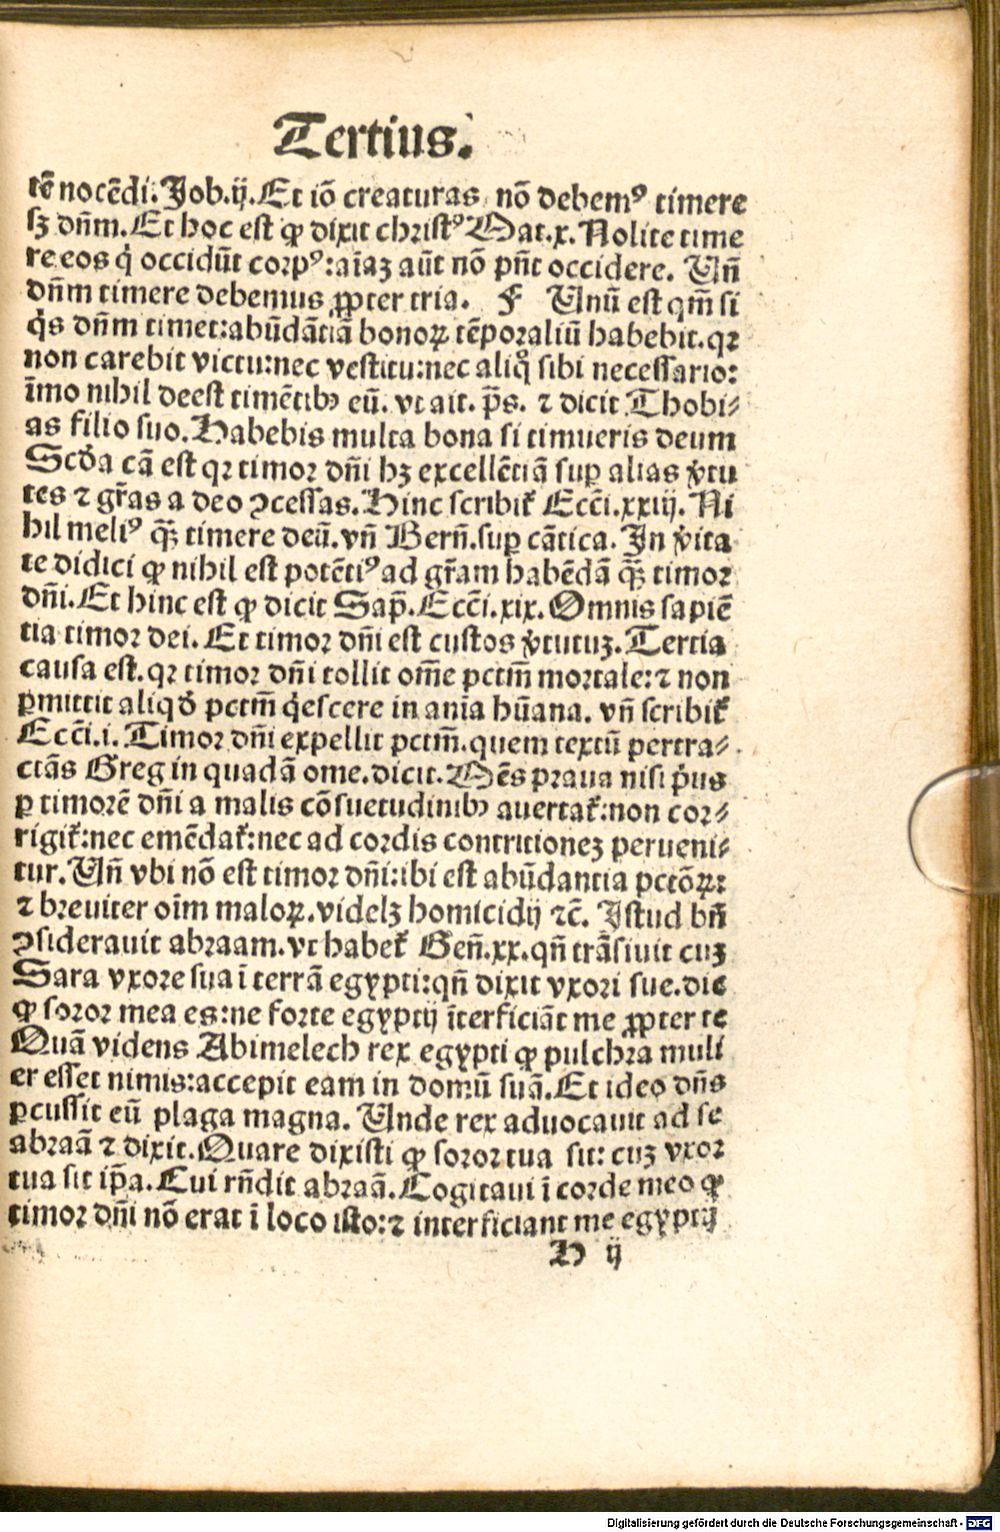 Tertius.
tē nocēdi. Job.ij. Et iō creaturas nō debemꝰ timere
sꝫ dn̄m. Et hoc est ꝙ dixit christꝰ Mat.x. Nolite time
re eos q̇ occidūt corpꝰ: aīaꝫ aūt nō pn̄t occidere. Un̄
dn̄m timere debemus ꝓpter tria. F Unū est qm̄ si
q̇s dn̄m timet: abūdātiā bonoꝝ tēporaliū habebit. qꝛ
non carebit victu: nec vestitu: nec aliq̊ sibi necessario:
īmo nihil deest timētibꝫ eū. vt ait. p̄s. ⁊ dicit Thobi⸗
as filio suo. Habebis multa bona si timueris deum
Scd̓a cā est qꝛ timor dn̄i hꝫ excellētiā suꝑ alias v̓tu
tes ⁊ gr̄as a deo ꝯcessas. Hinc scribit᷑ Ecci̅.xxiij. Ni
hil meliꝰ qͣꝫ timere deū. vn̄ Bern̄. suꝑ cātica. In v̓ita
te didici ꝙ nihil est potētiꝰ ad gr̄am habēdā qͣꝫ timor
dn̄i. Et hinc est ꝙ dicit Sap̄. Ecci̅.xix. Omnis sapiē
tia timor dei. Et timor dn̄i est custos v̓tutuꝫ. Tertia
causa est. qꝛ timor dn̄i tollit om̄e pctm̄ mortale: ⁊ non
ꝑmittit aliqd̓ pctm̄ q̇escere in anīa hūana. vn̄ scribit᷑
Ecci̅.i. Timor dn̄i expellit pctm̄. quem textū pertra⸗
ctās Greg in quadā ome. dicit. Mēs praua nisi pͥus
ꝑ timorē dn̄i a malis cōsuetudinibꝫ auertat᷑: non cor⸗
rigit᷑: nec emēdat᷑: nec ad cordis contritioneꝫ perueni⸗
tur. Un̄ vbi nō est timor dn̄i: ibi est abūdantia pctōꝝ:
⁊ breuiter oīm maloꝝ. videlꝫ homicidij ⁊c̄. Istud bn̄
ꝯsiderauit abraam. vt habet᷑ Gen̄.xx. qn̄ trāsiuit cuꝫ
Sara vxore sua ī terrā egypti: qn̄ dixit vxori sue. dic
ꝙ soror mea es: ne forte egyptij īterficiāt me ꝓpter te
Quā videns Abimelech rex egypti ꝙ pulchra muli
er esset nimis: accepit eam in domū suā. Et ideo dn̄s
ꝑcussit eū plaga magna. Unde rex aduocauit ad se
abraā ⁊ dixit. Quare dixisti ꝙ soror tua sit: cuꝫ vxor
tua sit ip̄a. Cui rn̄dit abraā. Cogitaui ī corde meo ꝙ
timor dn̄i nō erat ī loco isto: ⁊ interficiant me egyptij
H ij
Digitalisierung gefördert durch die Deutsche Forschungsgemeinschaft - DFG